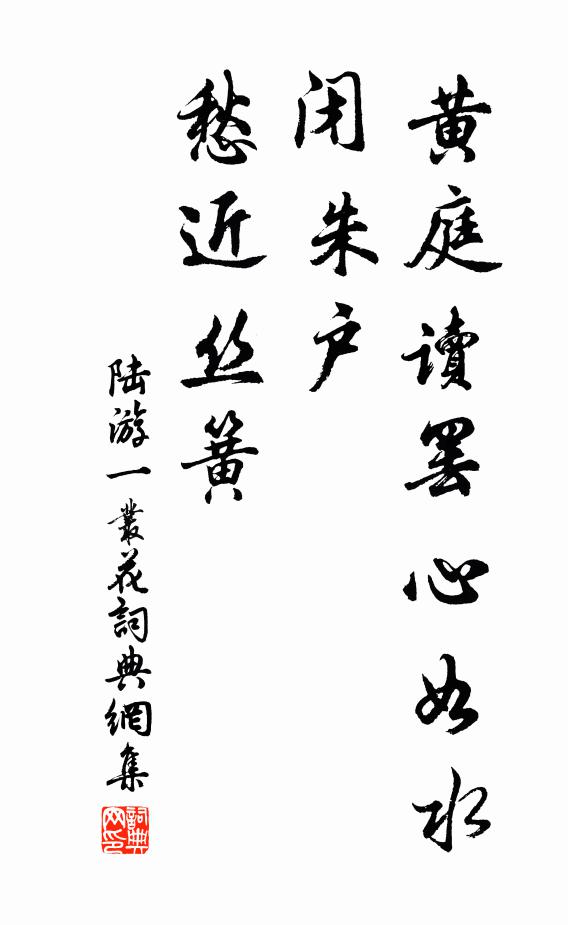 黄庭读罢心如水
闭朱户
愁近丝簧
陆游一叢花詞典網集
詞典网印